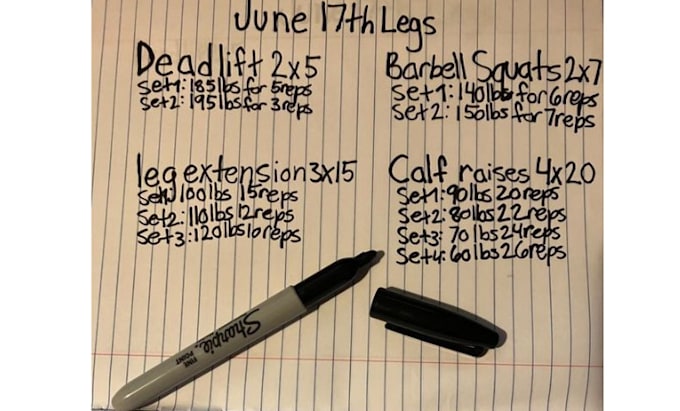 June 17th Legs
Deadlift 2x5
Set1:185lbs for 5reps
Set2:195lbs for 3reps
Barbell Squats 2x7
Set1:140lbs for 6reps
Set2:150lbs for 7reps
leg extension 3x15
Set1:100lbs 15reps
Set2:110lbs 12reps
Set3:120lbs 10reps
Calf raises 4x20
Set1:90lbs 20reps
Set2:80lbs 22reps
Set3:70lbs 24reps
Set4:60lbs 26reps
Sharpie.
FINE POINT